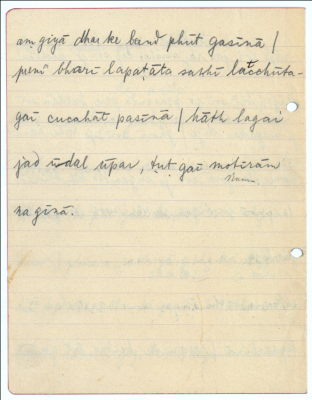 am giyā dhar ke bund phūt gasīnā |
punī bharī lapaṭāta sashī lacchuta-
gaī cucahāt pasīnā | hāth lagaī
jad ūdal ūpar, ṭuṭ gaī motīrām
nagīnā.